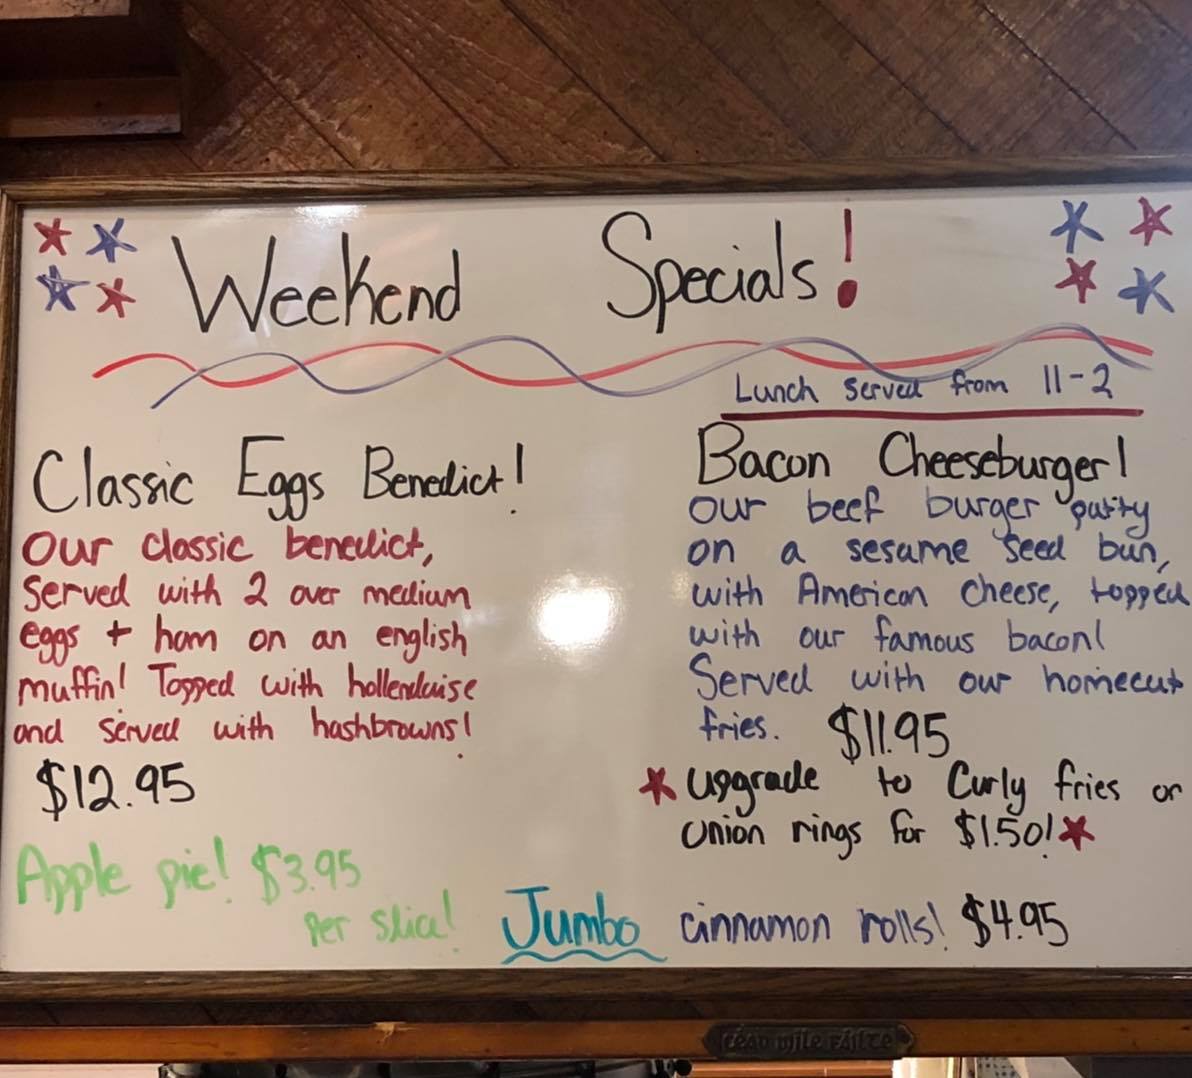 Weekend Specials!
Lunch served from 11-2
Classic Eggs Benedict!
our classic benedict,
served with 2 over medium
eggs + ham on an english
muffin! Topped with hollendaise
and served with hashbrowns!
$12.95
Apple pie! $3.95
per slice!
Bacon Cheeseburger!
our beef burger patty
on a sesame seed bun,
with American cheese, topped
with our famous bacon!
Served with our homecut
fries. $11.95
upgrade to Curly fries or
onion rings for $1.50!
Jumbo cinnamon rolls! $4.95
CÉAD MÍLE FÁILTE